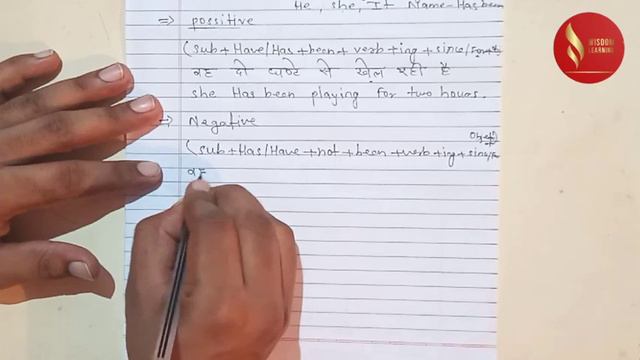 He, she, It Name-Has been
=> possitive
(sub + Have/Has + been + verb + ing + since/
वह दो घण्टे से खेल रही है
she Has been playing for two hours.
=> Negative
Object
(sub + Has/Have + not + been + verb + ing + since/
वह
WISDOM
LEARNING